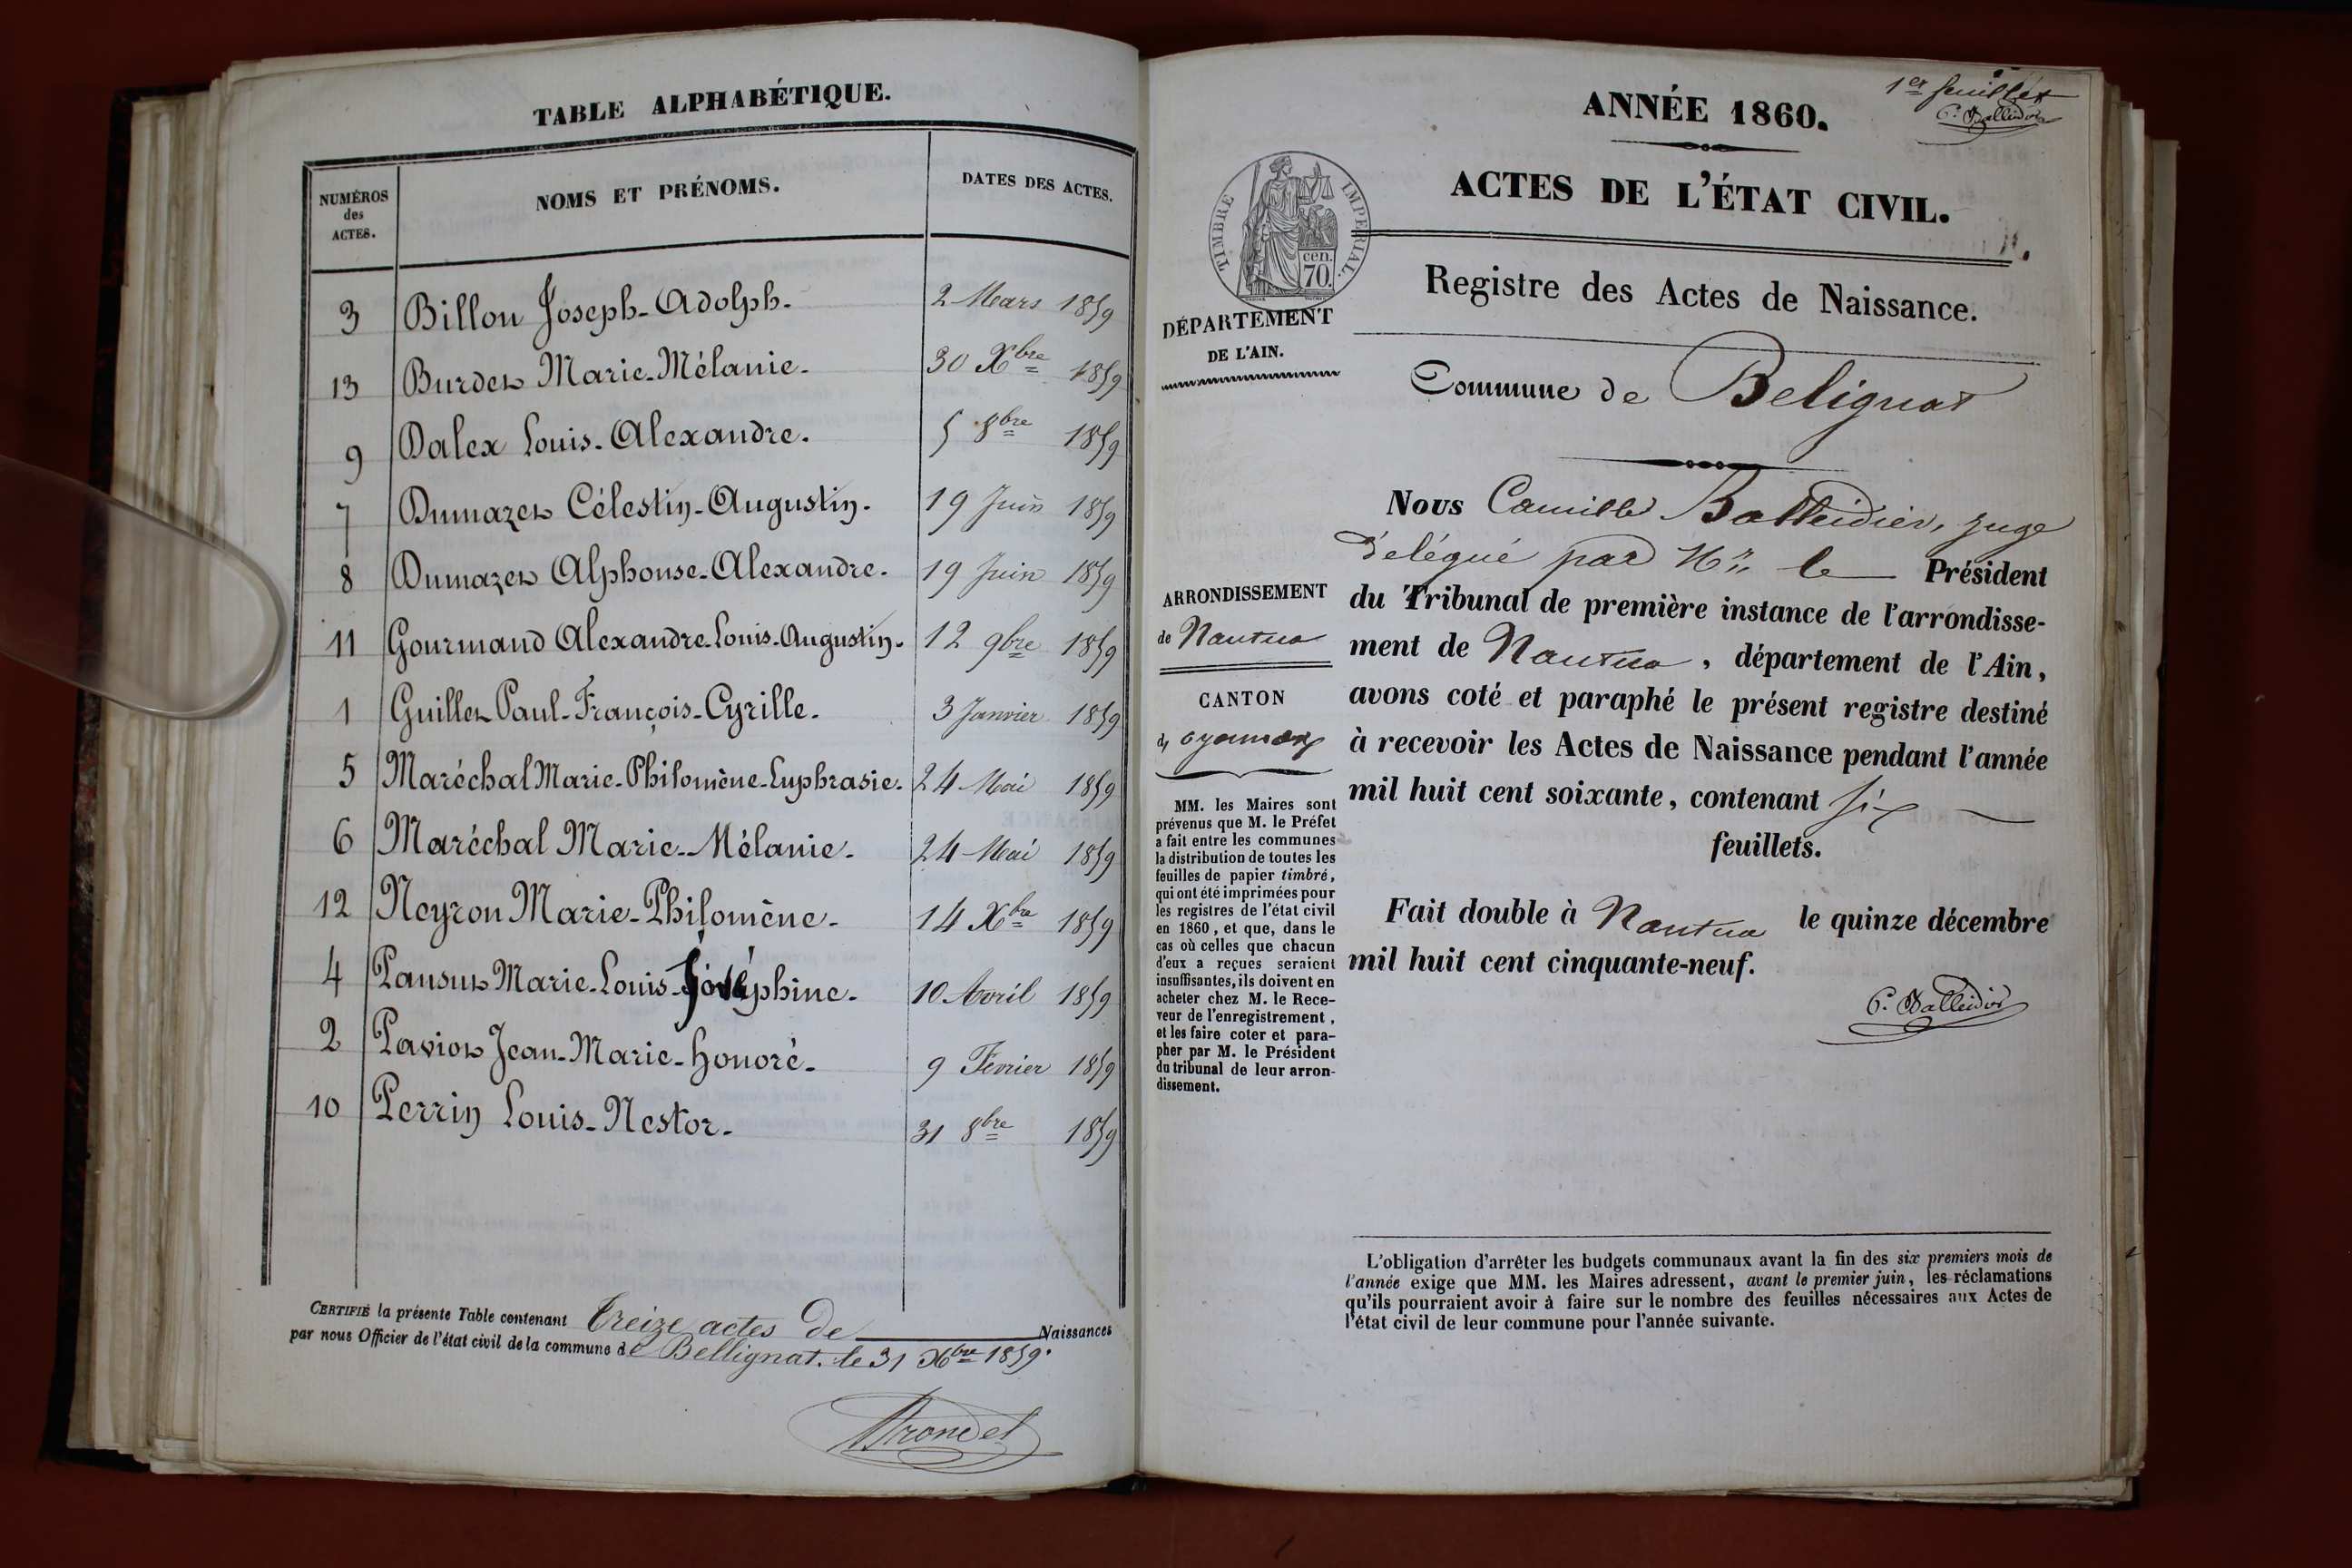 TABLE ALPHABÉTIQUE.
NUMÉROS des ACTES. NOMS ET PRÉNOMS. DATES DES ACTES.
3 Billon Joseph-Adolph. 2 Mars 1859
13 Burdet Marie-Mélanie. 30 Xbre 1859
9 Dalex Louis-Alexandre. 5 8bre 1859
7 Dumazet Célestin-Augustin. 19 Juin 1859
8 Dumazet Alphonse-Alexandre. 19 Juin 1859
11 Gourmand Alexandre-Louis-Augustin. 12 9bre 1859
1 Guillet Paul-François-Cyrille. 3 Janvier 1859
5 Maréchal Marie-Philomène-Euphrasie. 24 Mai 1859
6 Maréchal Marie-Mélanie. 24 Mai 1859
12 Neyron Marie-Philomène. 14 Xbre 1859
4 Pansut Marie-Louis-Joséphine. 10 Avril 1859
2 Paviot Jean-Marie-honoré. 9 Février 1859
10 Perrin Louis-Nestor. 31 8bre 1859
CERTIFIÉ la présente Table contenant treize actes de Naissances
par nous Officier de l'état civil de la commune de Bellignat. le 31 Xbre 1859.
1er feuillet
ANNÉE 1860.
ACTES DE L'ÉTAT CIVIL.
TIMBRE IMPÉRIAL.
cen.
70.
Registre des Actes de Naissance.
DÉPARTEMENT
DE L'AIN.
Commune de Belignat
Nous Camille Balleidier, juge
délégué par Mr. le Président
du Tribunal de première instance de l'arrondisse-
ment de Nantua, département de l'Ain,
avons coté et paraphé le présent registre destiné
à recevoir les Actes de Naissance pendant l'année
mil huit cent soixante, contenant six
feuillets.
Fait double à Nantua le quinze décembre
mil huit cent cinquante-neuf.
C. Balleidier
ARRONDISSEMENT
de Nantua
CANTON
d'oyonnax
MM. les Maires sont
prévenus que M. le Préfet
a fait entre les communes
la distribution de toutes les
feuilles de papier timbré,
qui ont été imprimées pour
les registres de l'état civil
en 1860, et que, dans le
cas où celles que chacun
d'eux a reçues seraient
insuffisantes, ils doivent en
acheter chez M. le Rece-
veur de l'enregistrement,
et les faire coter et para-
pher par M. le Président
du tribunal de leur arron-
dissement.
L'obligation d'arrêter les budgets communaux avant la fin des six premiers mois de
l'année exige que MM. les Maires adressent, avant le premier juin, les réclamations
qu'ils pourraient avoir à faire sur le nombre des feuilles nécessaires aux Actes de
l'état civil de leur commune pour l'année suivante.